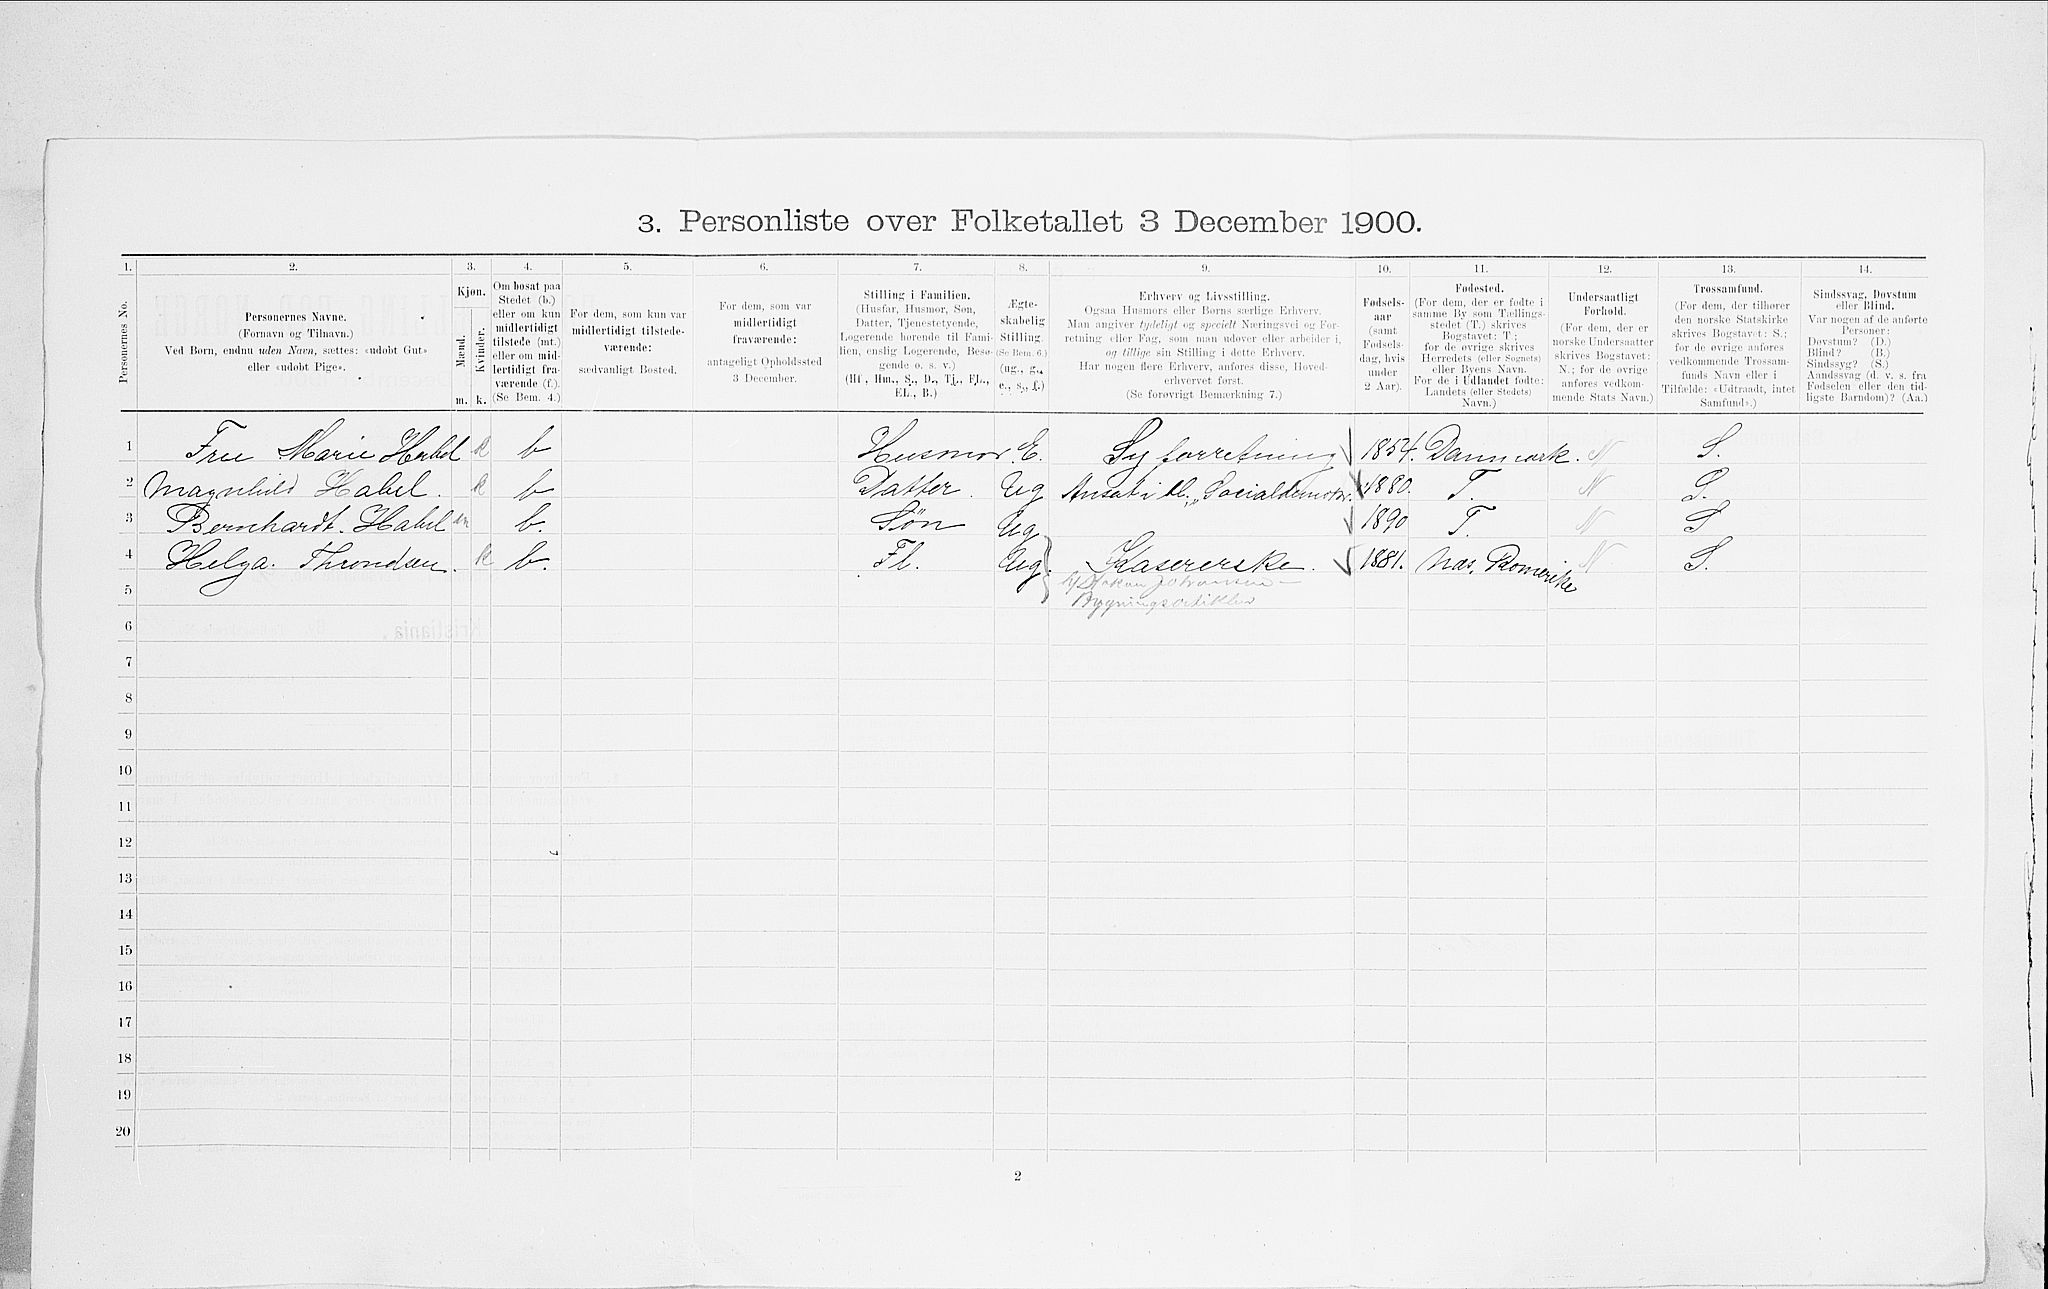 3. Personliste over Folketallet 3 December 1900.
1. 2. 3. 4. 5. 6. 7. 8. 9. 10. 11. 12. 13. 14.
Personernes No.
Personernes Navne.
(Fornavn og Tilnavn.)
Ved Børn, endnu uden Navn, sættes: «udøbt Gut»
eller «udøbt Pige».
Kjøn.
Mænd.
Kvinder.
m. k.
Om bosat paa
Stedet (b.)
eller om kun
midlertidigt
tilstede (mt.)
eller om mid-
lertidigt fra-
værende (f.).
(Se Bem. 4.)
For dem, som kun var
midlertidigt tilstede-
værende:
sædvanligt Bosted.
For dem, som var
midlertidigt
fraværende:
antageligt Opholdssted
3 December.
Stilling i Familien.
(Husfar, Husmor, Søn,
Datter, Tjenestetyende,
Logerende hørende til Fami-
lien, enslig Logerende, Besø-
gende o. s. v.)
(Hf., Hm., S., D., Tj., FL.,
EL., B.)
Ægte-
skabelig
Stilling.
(Se Bem. 6.)
(ug., g.,
e., s., f.)
Erhverv og Livsstilling.
Ogsaa Husmors eller Børns særlige Erhverv.
Man angiver tydeligt og specielt Næringsvei og For-
retning eller Fag, som man udøver eller arbeider i,
og tillige sin Stilling i dette Erhverv.
Har nogen flere Erhverv, anføres disse, Hoved-
erhvervet først.
(Se forøvrigt Bemærkning 7.)
Fødsels-
aar
(samt
Fødsels-
dag, hvis
under
2 Aar).
Fødested.
(For dem, der er fødte i
samme By som Tællings-
stedet (T.) skrives
Bogstavet: T;
for de øvrige skrives
Herredets (eller Sognets)
eller Byens Navn.
For de i Udlandet fødte:
Landets (eller Stedets)
Navn.)
Undersaatligt
Forhold.
(For dem, der er
norske Undersaatter
skrives Bogstavet:
N.; for de øvrige
anføres vedkom-
mende Stats Navn.)
Trossamfund.
(For dem, der tilhører
den norske Statskirke
skrives Bogstavet: S.;
for de øvrige anføres
vedkommende Trossam-
funds Navn eller i
Tilfælde: «Udtraadt, intet
Samfund».)
Sindssvag, Døvstum
eller Blind.
Var nogen af de anførte
Personer:
Døvstum? (D.)
Blind? (B.)
Sindssyg? (S.)
Aandssvag (d. v. s. fra
Fødselen eller den tid-
ligste Barndom)? (Aa.)
1 Frue Marie Habel k b Husmor E. Sy forretning 1854. Danmark. N S.
2 Magnhild Habel. k b Datter. Ug Ansat i bl. „Socialdemokr. 1880. T. N S.
3 Bernhardt. Habel m b. Søn Ug 1890 T. N S
4 Helga. Throndsen. k b. Fl. Ug. Kasererske. 1881. Næs. Romerike N S.
Johansen
5 Bygningsartikler
6
7
8
9
10
11
12
13
14
15
16
17
18
19
20
2